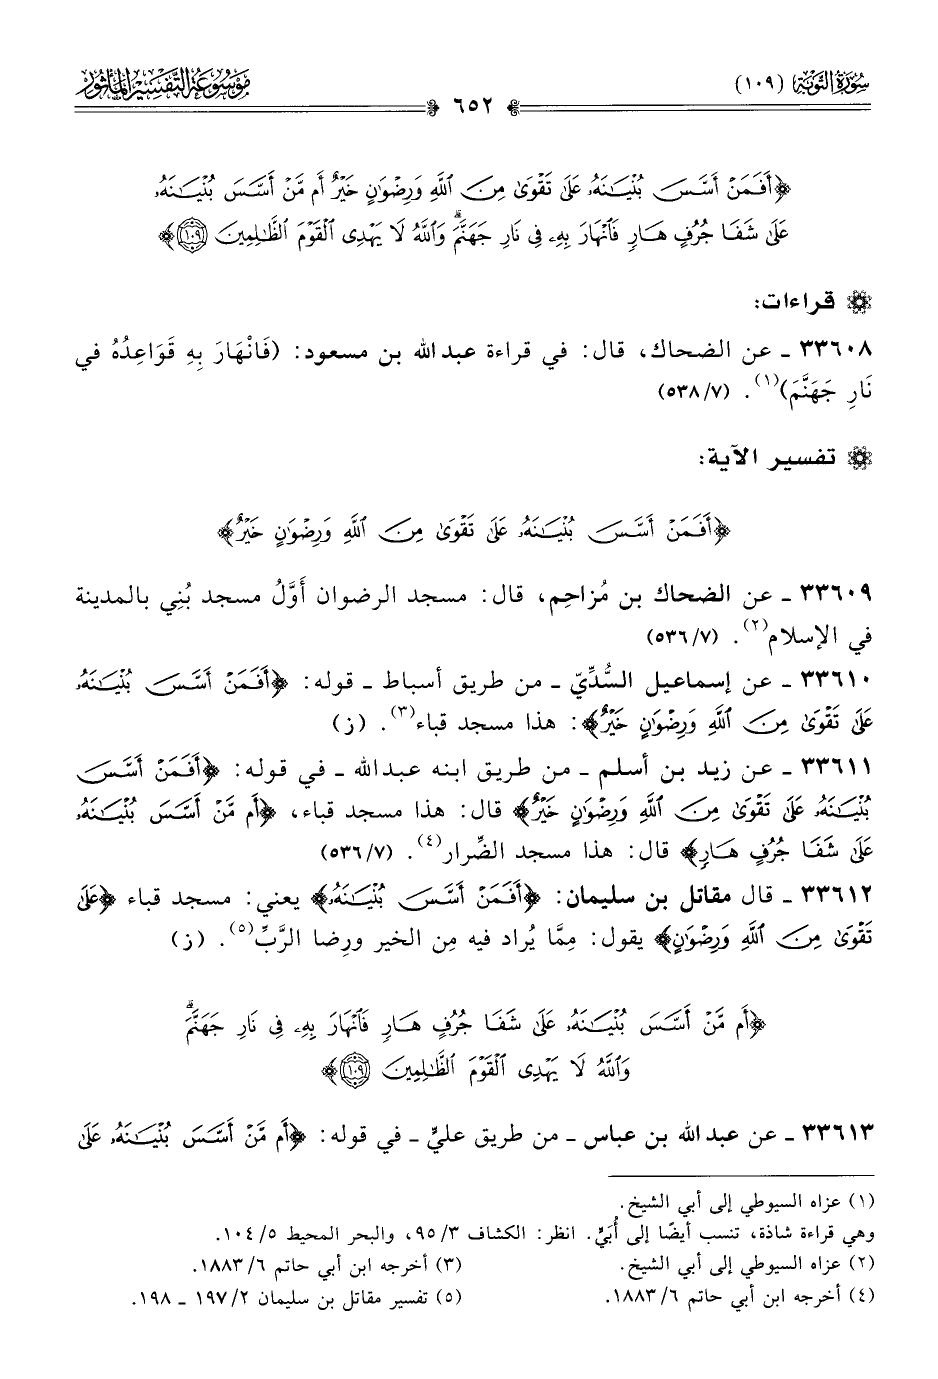 سُورَةُ التَّوْبَة (١٠٩)
٦٥٢
مَوْسُوعَةُ التَّفْسِيرِ المَأْثُورِ
﴿أَفَمَنْ أَسَّسَ بُنْيَٰنَهُۥ عَلَىٰ تَقْوَىٰ مِنَ ٱللَّهِ وَرِضْوَٰنٍ خَيْرٌ أَم مَّنْ أَسَّسَ بُنْيَٰنَهُۥ
عَلَىٰ شَفَا جُرُفٍ هَارٍ فَٱنْهَارَ بِهِۦ فِى نَارِ جَهَنَّمَۗ وَٱللَّهُ لَا يَهْدِى ٱلْقَوْمَ ٱلظَّٰلِمِينَ ١٠٩﴾
قراءات:
٣٣٦٠٨ ـ عن الضحاك، قال: في قراءة عبد الله بن مسعود: (فَانْهَارَ بِهِ قَوَاعِدُهُ فِي
نَارِ جَهَنَّمَ)(١). (٥٣٨/٧)
تفسير الآية:
﴿أَفَمَنْ أَسَّسَ بُنْيَٰنَهُۥ عَلَىٰ تَقْوَىٰ مِنَ ٱللَّهِ وَرِضْوَٰنٍ خَيْرٌ﴾
٣٣٦٠٩ ـ عن الضحاك بن مُزاحِم، قال: مسجد الرضوان أَوَّلُ مسجد بُنِي بالمدينة
في الإسلام(٢). (٥٣٦/٧)
٣٣٦١٠ ـ عن إسماعيل السُّدِّيّ ـ من طريق أسباط ـ قوله: ﴿أَفَمَنْ أَسَّسَ بُنْيَٰنَهُۥ
عَلَىٰ تَقْوَىٰ مِنَ ٱللَّهِ وَرِضْوَٰنٍ خَيْرٌ﴾: هذا مسجد قباء(٣). (ز)
٣٣٦١١ ـ عن زيد بن أسلم ـ من طريق ابنه عبد الله ـ في قوله: ﴿أَفَمَنْ أَسَّسَ
بُنْيَٰنَهُۥ عَلَىٰ تَقْوَىٰ مِنَ ٱللَّهِ وَرِضْوَٰنٍ خَيْرٌ﴾ قال: هذا مسجد قباء، ﴿أَم مَّنْ أَسَّسَ بُنْيَٰنَهُۥ
عَلَىٰ شَفَا جُرُفٍ هَارٍ﴾ قال: هذا مسجد الضِّرار(٤). (٥٣٦/٧)
٣٣٦١٢ ـ قال مقاتل بن سليمان: ﴿أَفَمَنْ أَسَّسَ بُنْيَٰنَهُۥ﴾ يعني: مسجد قباء ﴿عَلَىٰ
تَقْوَىٰ مِنَ ٱللَّهِ وَرِضْوَٰنٍ﴾ يقول: مِمَّا يُراد فيه مِن الخير ورِضا الرَّبِّ(٥). (ز)
﴿أَم مَّنْ أَسَّسَ بُنْيَٰنَهُۥ عَلَىٰ شَفَا جُرُفٍ هَارٍ فَٱنْهَارَ بِهِۦ فِى نَارِ جَهَنَّمَۗ
وَٱللَّهُ لَا يَهْدِى ٱلْقَوْمَ ٱلظَّٰلِمِينَ ١٠٩﴾
٣٣٦١٣ ـ عن عبد الله بن عباس ـ من طريق عليّ ـ في قوله: ﴿أَم مَّنْ أَسَّسَ بُنْيَٰنَهُۥ عَلَىٰ
(١) عزاه السيوطي إلى أبي الشيخ.
وهي قراءة شاذة، تنسب أيضًا إلى أُبَيٍّ. انظر: الكشاف ٣/ ٩٥، والبحر المحيط ٥/ ١٠٤.
(٢) عزاه السيوطي إلى أبي الشيخ.
(٣) أخرجه ابن أبي حاتم ٦/ ١٨٨٣.
(٤) أخرجه ابن أبي حاتم ٦/ ١٨٨٣.
(٥) تفسير مقاتل بن سليمان ٢/ ١٩٧ ـ ١٩٨.